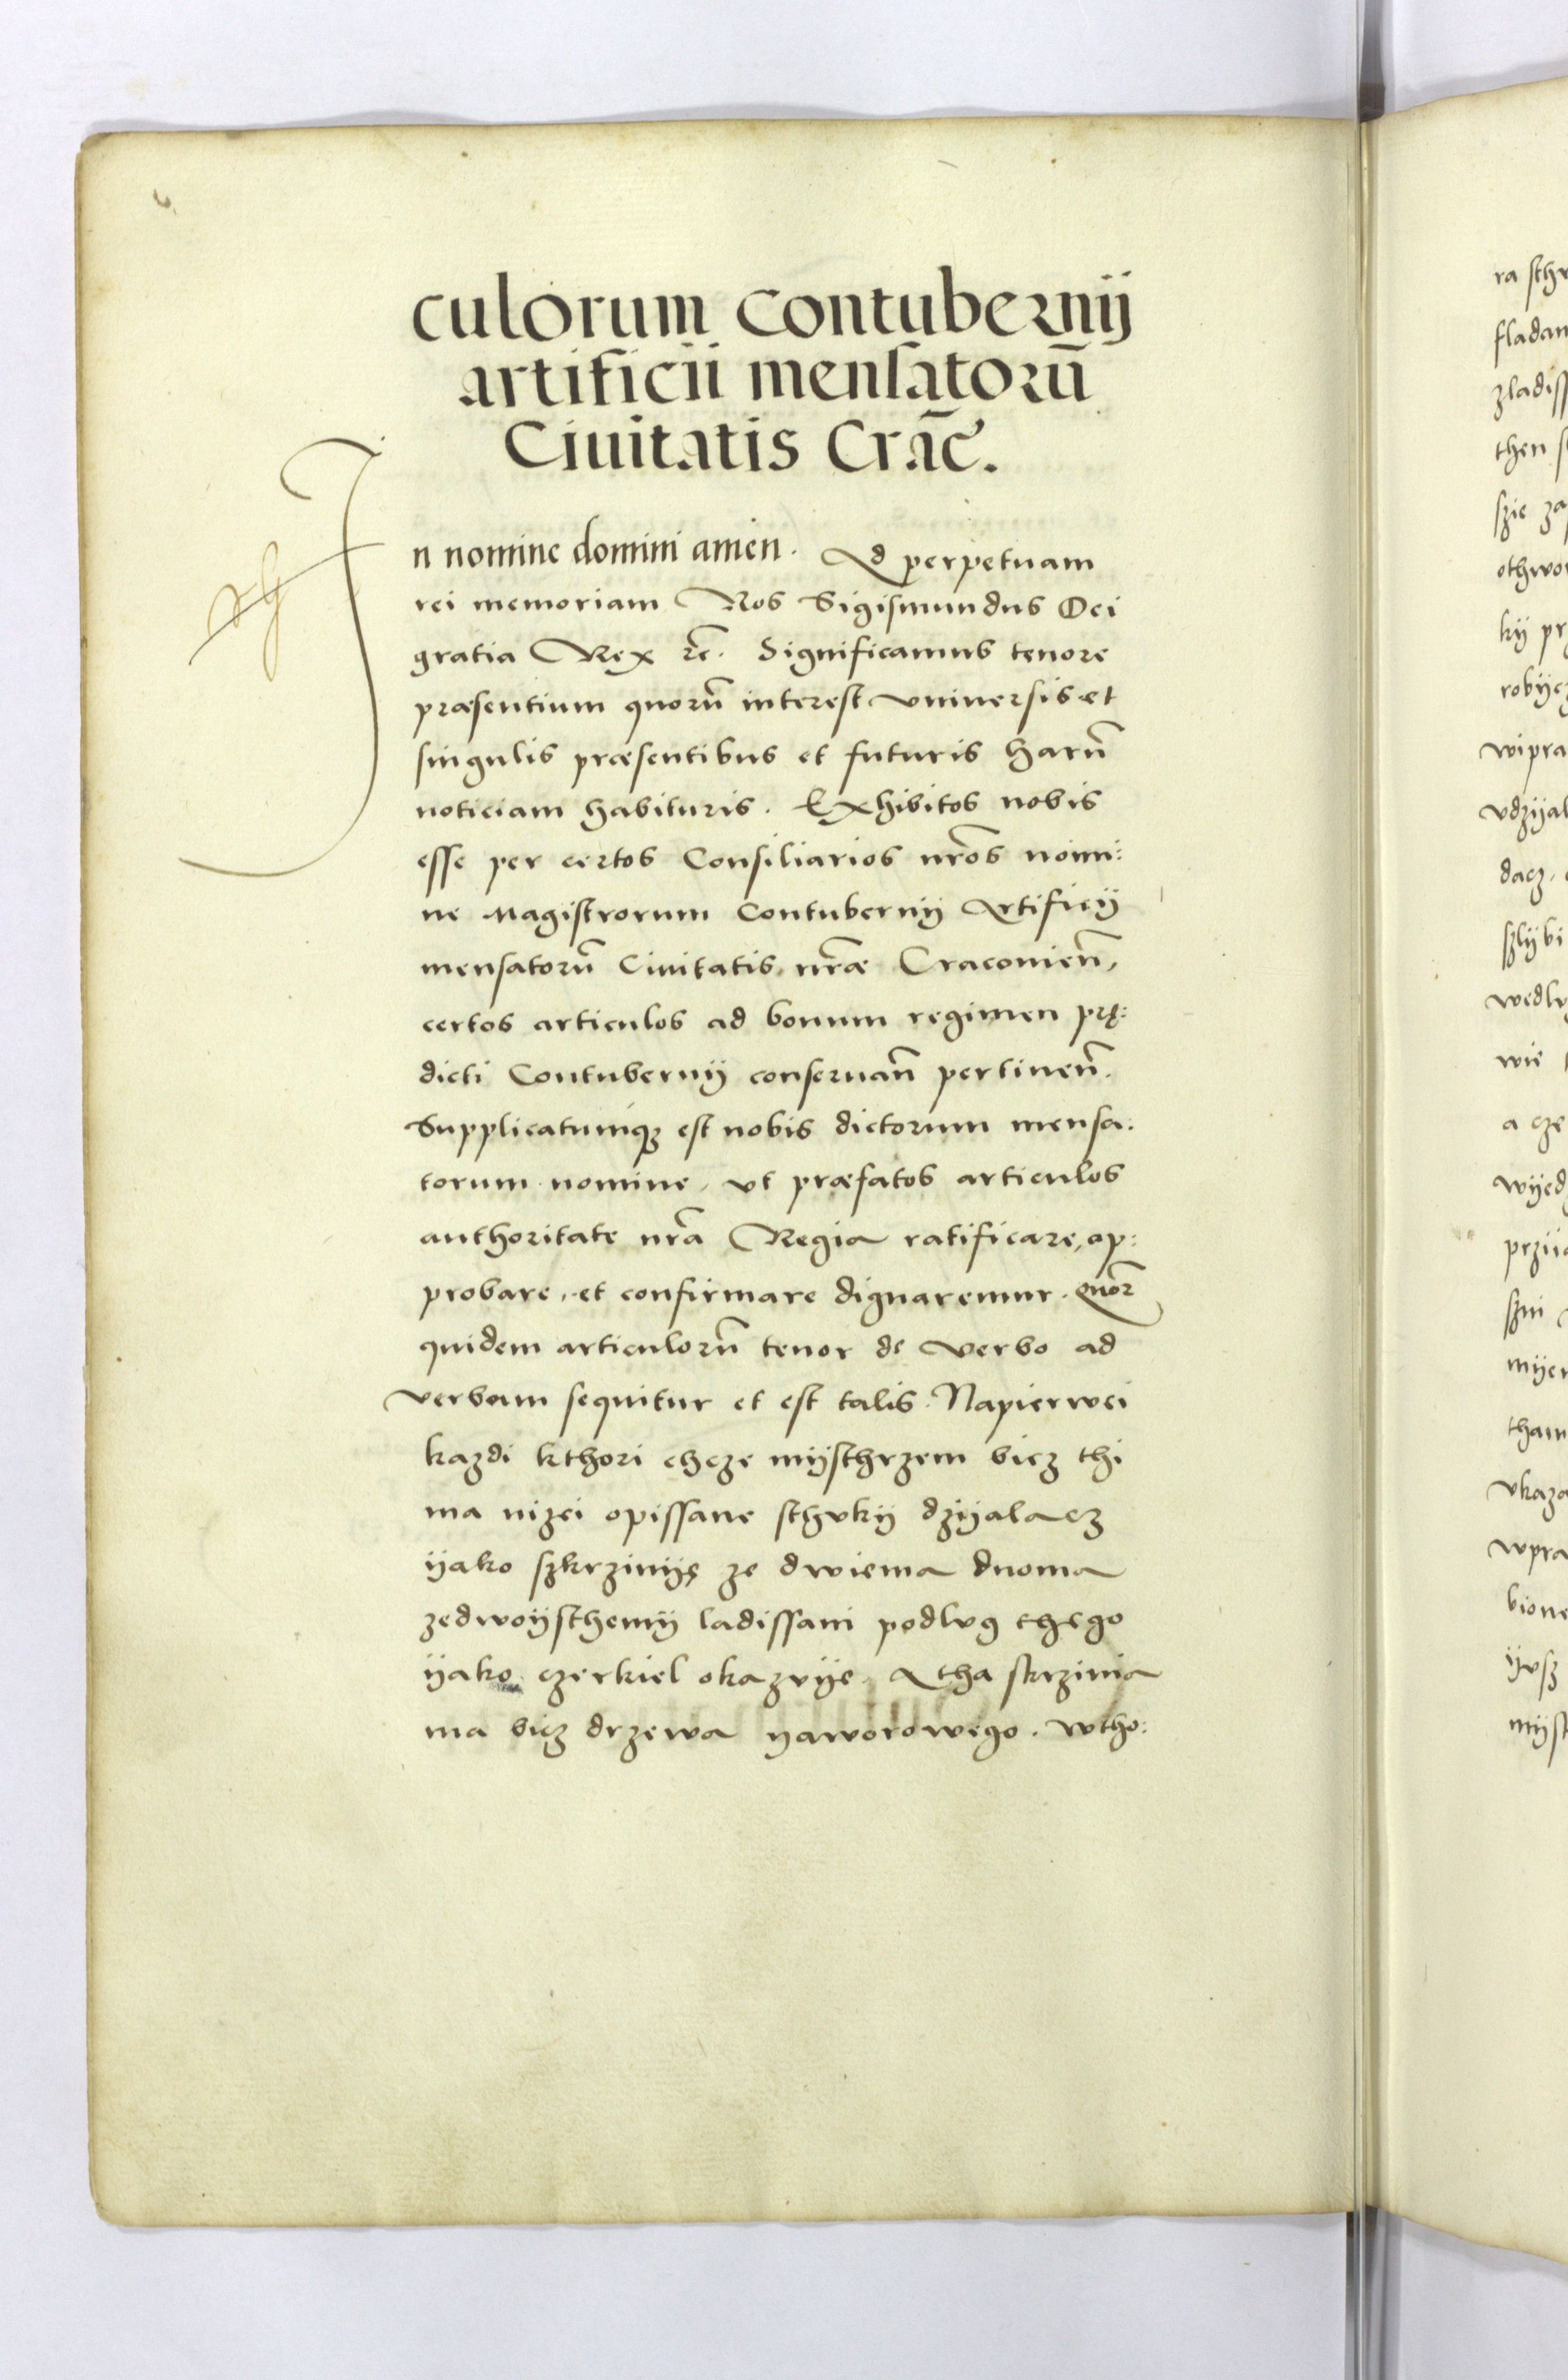 culorum Contubernij
artificii mensatorū
Ciuitatis Crac̄.
In nomine domini amen. Ad perpetuam
rei memoriam Nos Sigismundus Dei
gratia Rex rc̄. Significamus tenore
præsentium quorū interest vniuersis et
singulis præsentibus et futuris harū
noticiam habituris. Exhibitos nobis
esse per certos Consiliarios nr̄os nomi:
ne Magistrorum Contubernij Artificij
mensatorū Ciuitatis nr̄æ Cracouien̄,
certos articulos ad bonum regimen prę:
dicti Contubernij conseruan̄ pertinen̄.
Supplicatumqȝ est nobis dictorum mensa:
torum nomine, vt præfatos articulos
authoritate nr̄a Regia ratificare, ap:
probare, et confirmare dignaremur. Quor̄
quidem articulorū tenor de verbo ad
verbum sequitur et est talis. Napierwei
kazdi kthori chcze mijsthrzem bicz thi
ma nizei opissane sthvkij dzijalacz
ijako szkrziniję ze dwiema dnoma
zedwoijsthemij ladissani podlvg thego
ijako czerkiel okazvije. A tha skrzinia
ma bicz drzewa yaworowego. wtho:
ra sthv
fladan
zladiss
then s
szie za
othwo
kij pr
robijcz
wipra
vdzijal
dacz.
szlijbi
wedlv
wie
a cze
wijed
przij
szni
mijen
tham
vkaza
wpra
bione
ijvsz
mijst